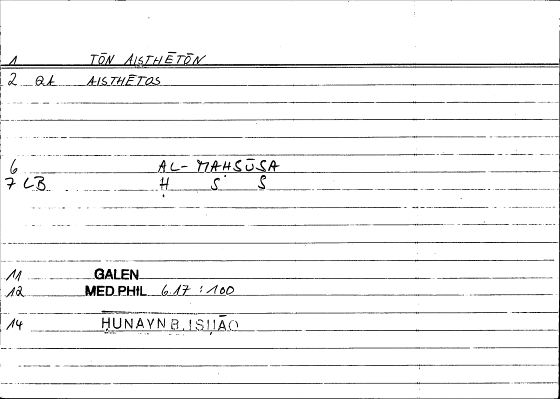 1 TŌN AISTHĒTŌN
2 QA AISTHĒTOS
6 AL-MAḤSŪSA
7 LB Ḥ S S
11 GALEN
12 MED PHIL 6.17 : 100
14 ḤUNAYN B. ISḤĀQ